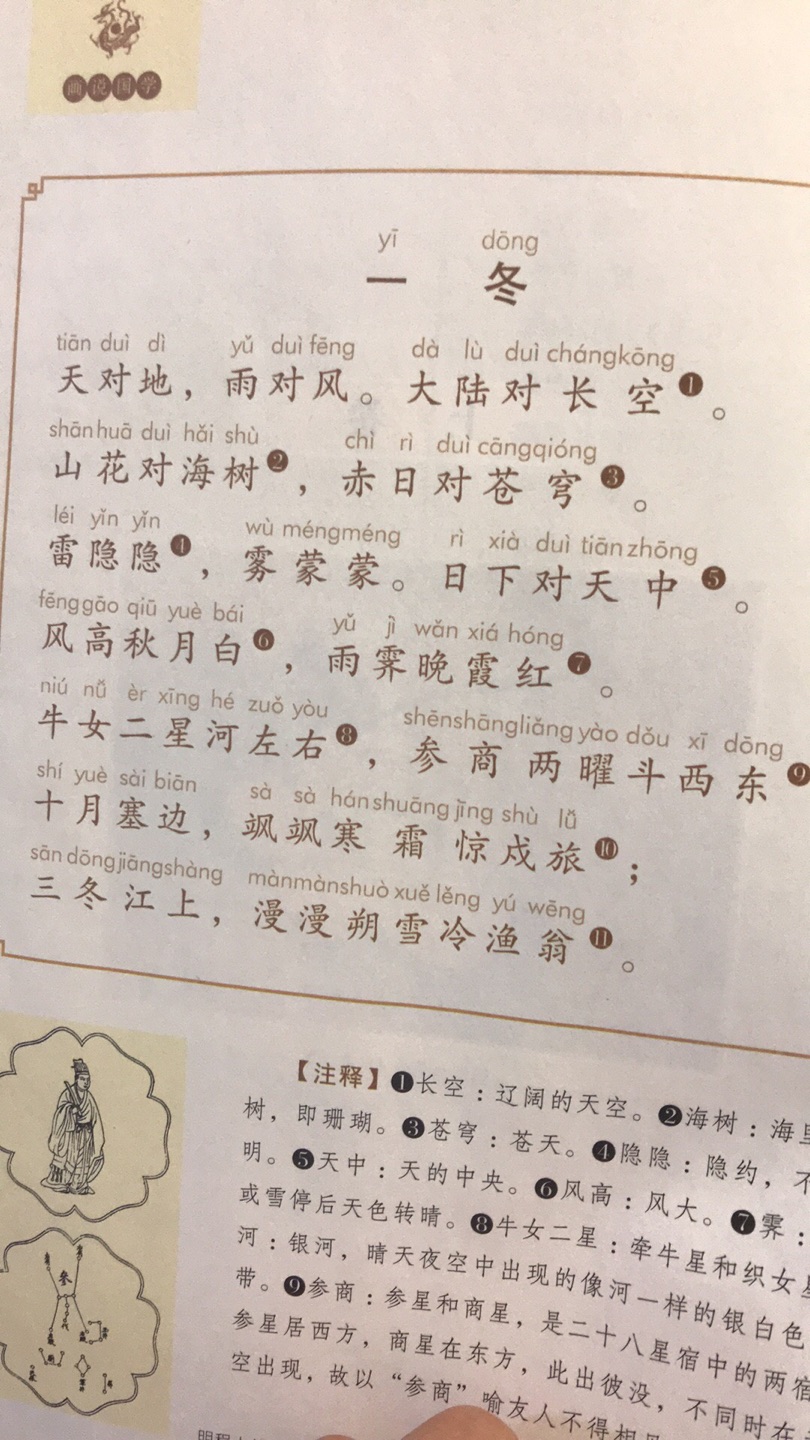 画说国学
yī dōng
一 冬
tiān duì dì yǔ duì fēng dà lù duì cháng kōng
天对地，雨对风。大陆对长空❶。
shān huā duì hǎi shù chì rì duì cāng qióng
山花对海树❷，赤日对苍穹❸。
léi yǐn yǐn wù méng méng rì xià duì tiān zhōng
雷隐隐❹，雾蒙蒙。日下对天中❺。
fēng gāo qiū yuè bái yǔ jì wǎn xiá hóng
风高秋月白❻，雨霁晚霞红❼。
niú nǚ èr xīng hé zuǒ yòu shēn shāng liǎng yào dǒu xī dōng
牛女二星河左右❽，参商两曜斗西东❾
shí yuè sài biān sà sà hán shuāng jīng shù lǚ
十月塞边，飒飒寒霜惊戍旅❿；
sān dōng jiāng shàng màn màn shuò xuě lěng yú wēng
三冬江上，漫漫朔雪冷渔翁⓫。
【注释】❶长空：辽阔的天空。❷海树：海里
树，即珊瑚。❸苍穹：苍天。❹隐隐：隐约，不
明。❺天中：天的中央。❻风高：风大。❼霁：
或雪停后天色转晴。❽牛女二星：牵牛星和织女星
河：银河，晴天夜空中出现的像河一样的银白色
带。❾参商：参星和商星，是二十八星宿中的两宿
参星居西方，商星在东方，此出彼没，不同时在
空出现，故以“参商”喻友人不得相
参